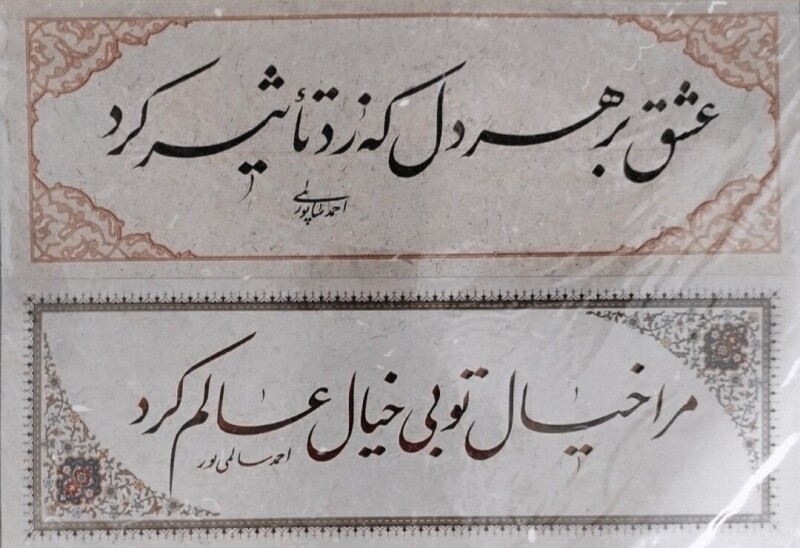 عشق بر هر دل که زد تأثیر کرد
احمد سالمی پور
مرا خیال تو بی خیال عالم کرد
احمد سالمی پور